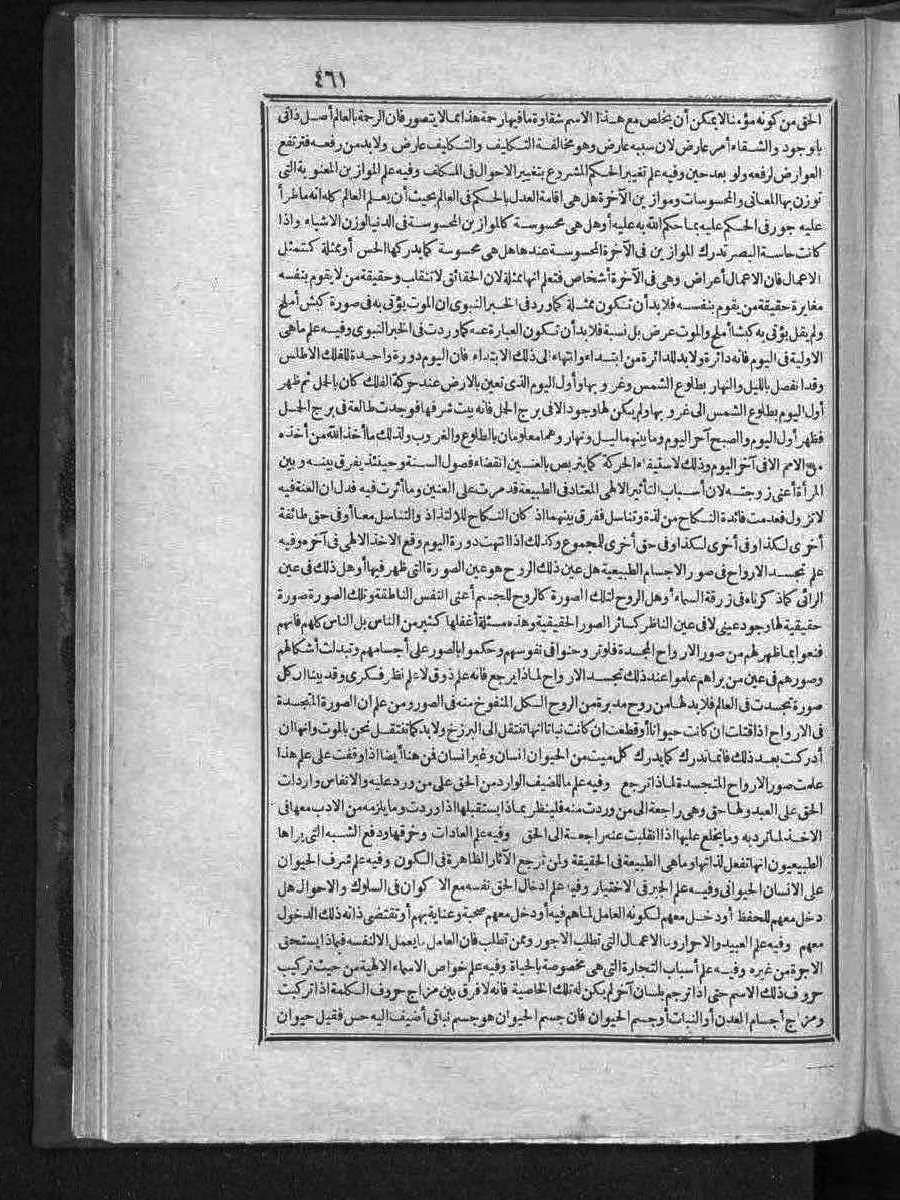 ٤٦١
الحق من كونه مؤمنا لا يمكن أن يخلص مع هذا الاسم شقاوة ما فيها رحمة هذا مما لا يتصور فان الرحمة بالعالم أصل ذاتى
بالوجود والشقاء أمر عارض لان سببه عارض وهو مخالفة التكليف والتكليف عارض ولا بد من رفعه فترتفع
العوارض لرفعه ولو بعد حين وفيه علم تغيير الحكم المشروع بتغيير الاحوال فى المكلف وفيه علم الموازين المعنوية التى
توزن بها المعانى والمحسوسات وموازين الآخرة هل هى اقامة العدل بالحكم فى العالم بحيث أن يعلم العالم كله انه ما طرأ
عليه جور فى الحكم عليه بما حكم الله به عليه أو هل هى محسوسة كالموازين المحسوسة فى الدنيا لوزن الاشياء واذا
كانت حاسة البصر تدرك الموازين فى الآخرة المحسوسة عندها هل هى محسوسة كما يدركها الحس أو ممثلة كتمثل
الاعمال فان الاعمال أعراض وهى فى الآخرة أشخاص فتعلم انها ممثلة لان الحقائق لا تنقلب وحقيقة من لا يقوم بنفسه
مغايرة حقيقة من يقوم بنفسه فلا بد أن تكون ممثلة كما ورد فى الخبر النبوى ان الموت يؤتى به فى صورة كبش أملح
ولم يقل يؤتى به كبشا أملح والموت عرض بل نسبة فلا بد أن تكون العبارة عنه كما وردت فى الخبر النبوى وفيه علم ما هى
الاولية فى اليوم فانه دائرة ولا بد للدائرة من ابتداء وانتهاء الى ذلك الابتداء فان اليوم دورة واحدة للفلك الاطلس
وقد انفصل بالليل والنهار بطلوع الشمس وغروبها وأول اليوم الذى تعين بالارض عند حركة الفلك كان بالحمل ثم ظهر
أول اليوم بطلوع الشمس الى غروبها ولم يكن لها وجود الا فى برج الحمل فانه بيت شرفها فوجدت طالعة فى برج الحمل
فظهر أول اليوم والصبح آخر اليوم وما بينهما ليل ونهار وهما معلومان بالطلوع والغروب ولذلك ما أخذ الله من أخذه
من الامم الا فى آخر اليوم وذلك لاستيفاء الحركة كما يتربص بالعنين انقضاء فصول السنة وحينئذ يفرق بينه وبين
المرأة أعنى زوجته لان أسباب التأثير الالهى المعتاد فى الطبيعة قد مرت على العنين وما أثرت فيه فدل ان العنة فيه
لا تزول فعدمت فائدة النكاح من لذة وتناسل ففرق بينهما اذ كان النكاح للالتذاذ والتناسل معا أو فى حق طائفة
أخرى لكذا وفى أخرى لكذا وفى حق أخرى للمجموع وكذلك اذا انتهت دورة اليوم وقع الاخذ الالهى فى آخره وفيه
علم تجسد الارواح فى صور الاجسام الطبيعية هل عين ذلك الروح هو عين الصورة التى ظهر فيها أو هل ذلك فى عين
الرائى كما ذكرناه فى زرقة السماء أو هل الروح لتلك الصورة كالروح للجسم أعنى النفس الناطقة وتلك الصورة صورة
حقيقية لها وجود عينى لا فى عين الناظر كسائر الصور الحقيقية وهذه مسئلة أغفلها كثير من الناس بل الناس كلهم فانهم
قنعوا بما ظهر لهم من صور الارواح المجسدة فلو تروحنوا فى نفوسهم وحكموا بالصور على أجسامهم وتبدلت أشكالهم
وصورهم فى عين من يراهم علموا عند ذلك تجسد الارواح لماذا يرجع فانه علم ذوق لا علم نظر فكرى وقد بينا ان كل
صورة تجسدت فى العالم فلا بد لها من روح مدبرة من الروح الكل المنفوخ منه فى الصور ومن علم ان الصورة المتجسدة
فى الارواح اذا قتلت ان كانت حيوانا أو قطعت ان كانت نباتا انها تنتقل الى البرزخ ولا بد كما ننتقل نحن بالموت وانها ان
أدركت بعد ذلك فانما تدرك كما يدرك كل ميت من الحيوان انسان وغير انسان فمن هنا أيضا اذا وقفت على علم هذا
علمت صور الارواح المتجسدة لماذا ترجع وفيه علم ما للضيف الوارد من الحق على من ورد عليه والانفاس واردات
الحق على العبد ولها حق وهى راجعة الى من وردت منه فلينظر بماذا يستقبلها اذا وردت وما يلزمه من الادب معها فى
الاخذ لما ترد به وما يخلع عليها اذا انقلبت عنه راجعة الى الحق وفيه علم العادات وخرقها ودفع الشبه التى يراها
الطبيعيون انها تفعل لذاتها وما هى الطبيعة فى الحقيقة ولمن ترجع الآثار الظاهرة فى الكون وفيه علم شرف الحيوان
على الانسان الحيوانى وفيه علم الجبر فى الاختيار وفيه علم ادخال الحق نفسه مع الاكوان فى السلوك والاحوال هل
دخل معهم للحفظ أو دخل معهم لكونه العامل لما هم فيه أو دخل معهم صحبة وعناية بهم أو تقتضى ذاته ذلك الدخول
معهم وفيه علم العبيد والاحرار وما الاعمال التى تطلب الاجور وممن تطلب فان العامل ما يعمل الا لنفسه فبماذا يستحق
الاجرة من غيره وفيه علم أسباب التجارة التى هى مخصوصة بالحياة وفيه علم خواص الاسماء الالهية من حيث تركيب
حروف ذلك الاسم حتى اذا ترجم بلسان آخر لم يكن له تلك الخاصية فانه لا فرق بين مزاج حروف الكلمة اذا تركبت
ومزاج أجسام المعدن أو النبات أو جسم الحيوان فان جسم الحيوان هو جسم نباتى أضيف اليه حس فقيل حيوان